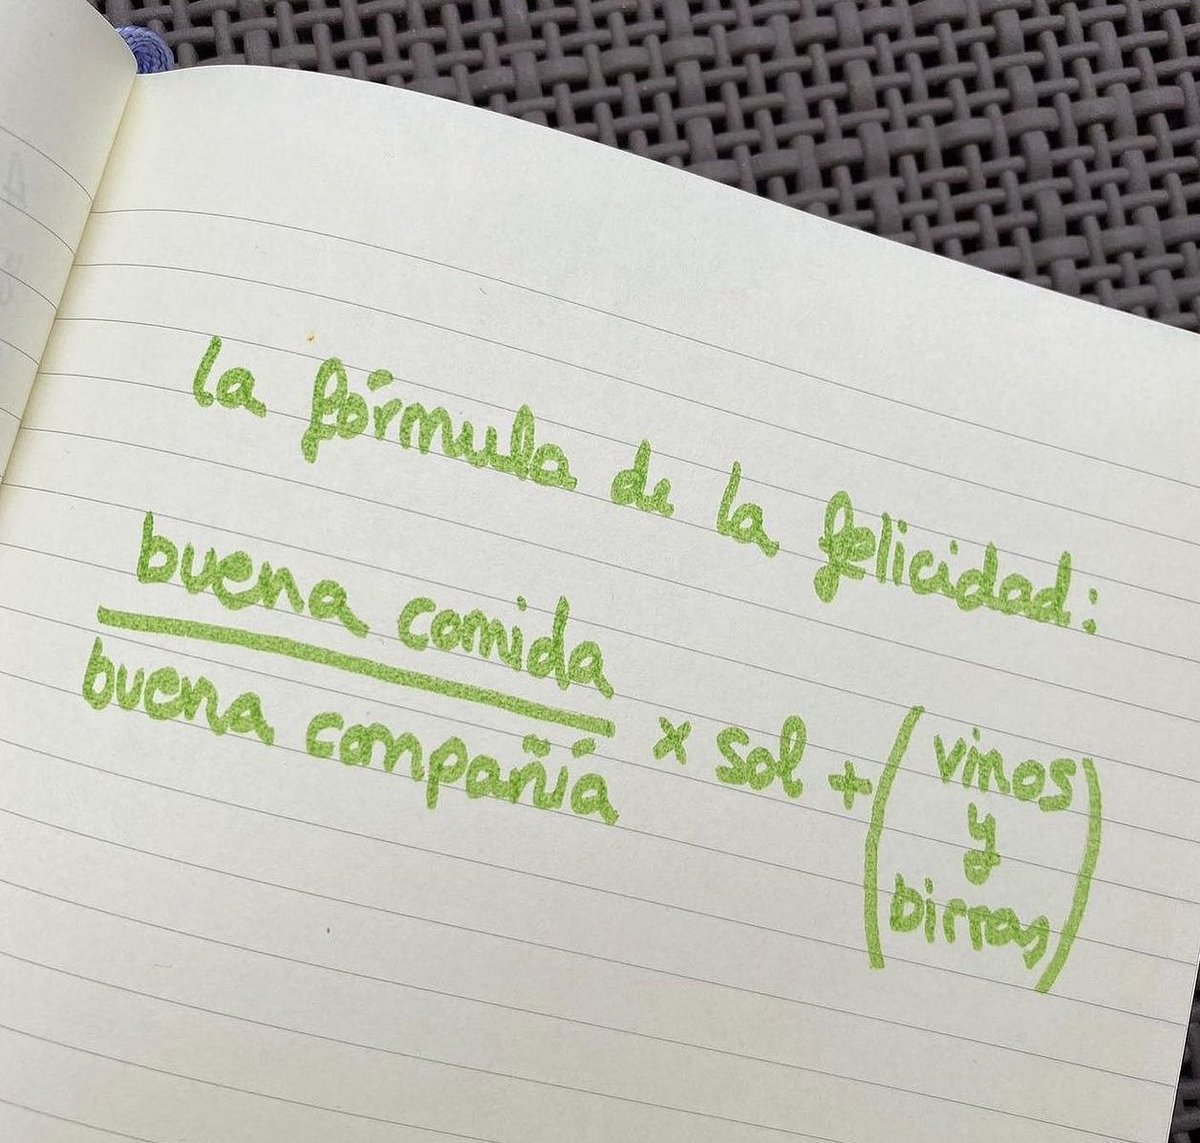 la fórmula de la felicidad:
buena comida
buena compañía
x sol + (vinos
y
birras)